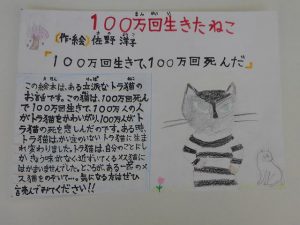 100万回生きたねこ
《作・絵》佐野 洋子
"100万回生きて、100万回死んだ"
この絵本は、ある立派なトラ猫の
お話です。この猫は、100万回死ん
で100万回生きて、100万人の人
がトラ猫をかわいがり、100万人がト
ラ猫の死を悲しんだのです。ある時、
トラ猫は、かい主のいないトラ猫に生ま
れ変わりました。トラ猫は、自分のことにし
かきょう味がなく近ずいてくるメス猫に
はかまいませんでした。ところが、ある一匹のメ
ス猫をのぞいて…。気になる方はぜひ
読んでみてください!!